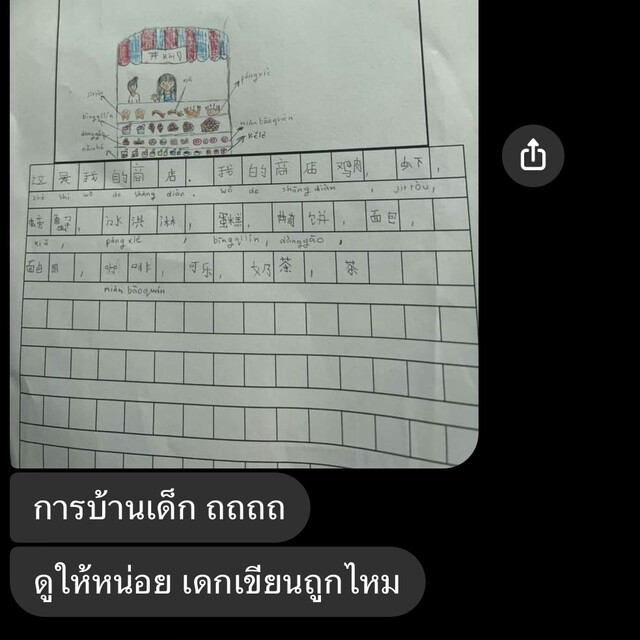 pángxiè
bīngqílín
miàn bāoquán
kělè
这是我的商店. 我的商店鸡肉, 虾,
zhè shì wǒ de shāng diàn. wǒ de shāng diàn , jī ròu,
螃蟹, 冰淇淋, 蛋糕, 面包,
xiā , páng xiè , bīngqílín, dàngāo ,
面包圈, 咖啡, 可乐, 奶茶, 茶
miàn bāoquán
การบ้านเด็ก ถถถถ
ดูให้หน่อย เดกเขียนถูกไหม